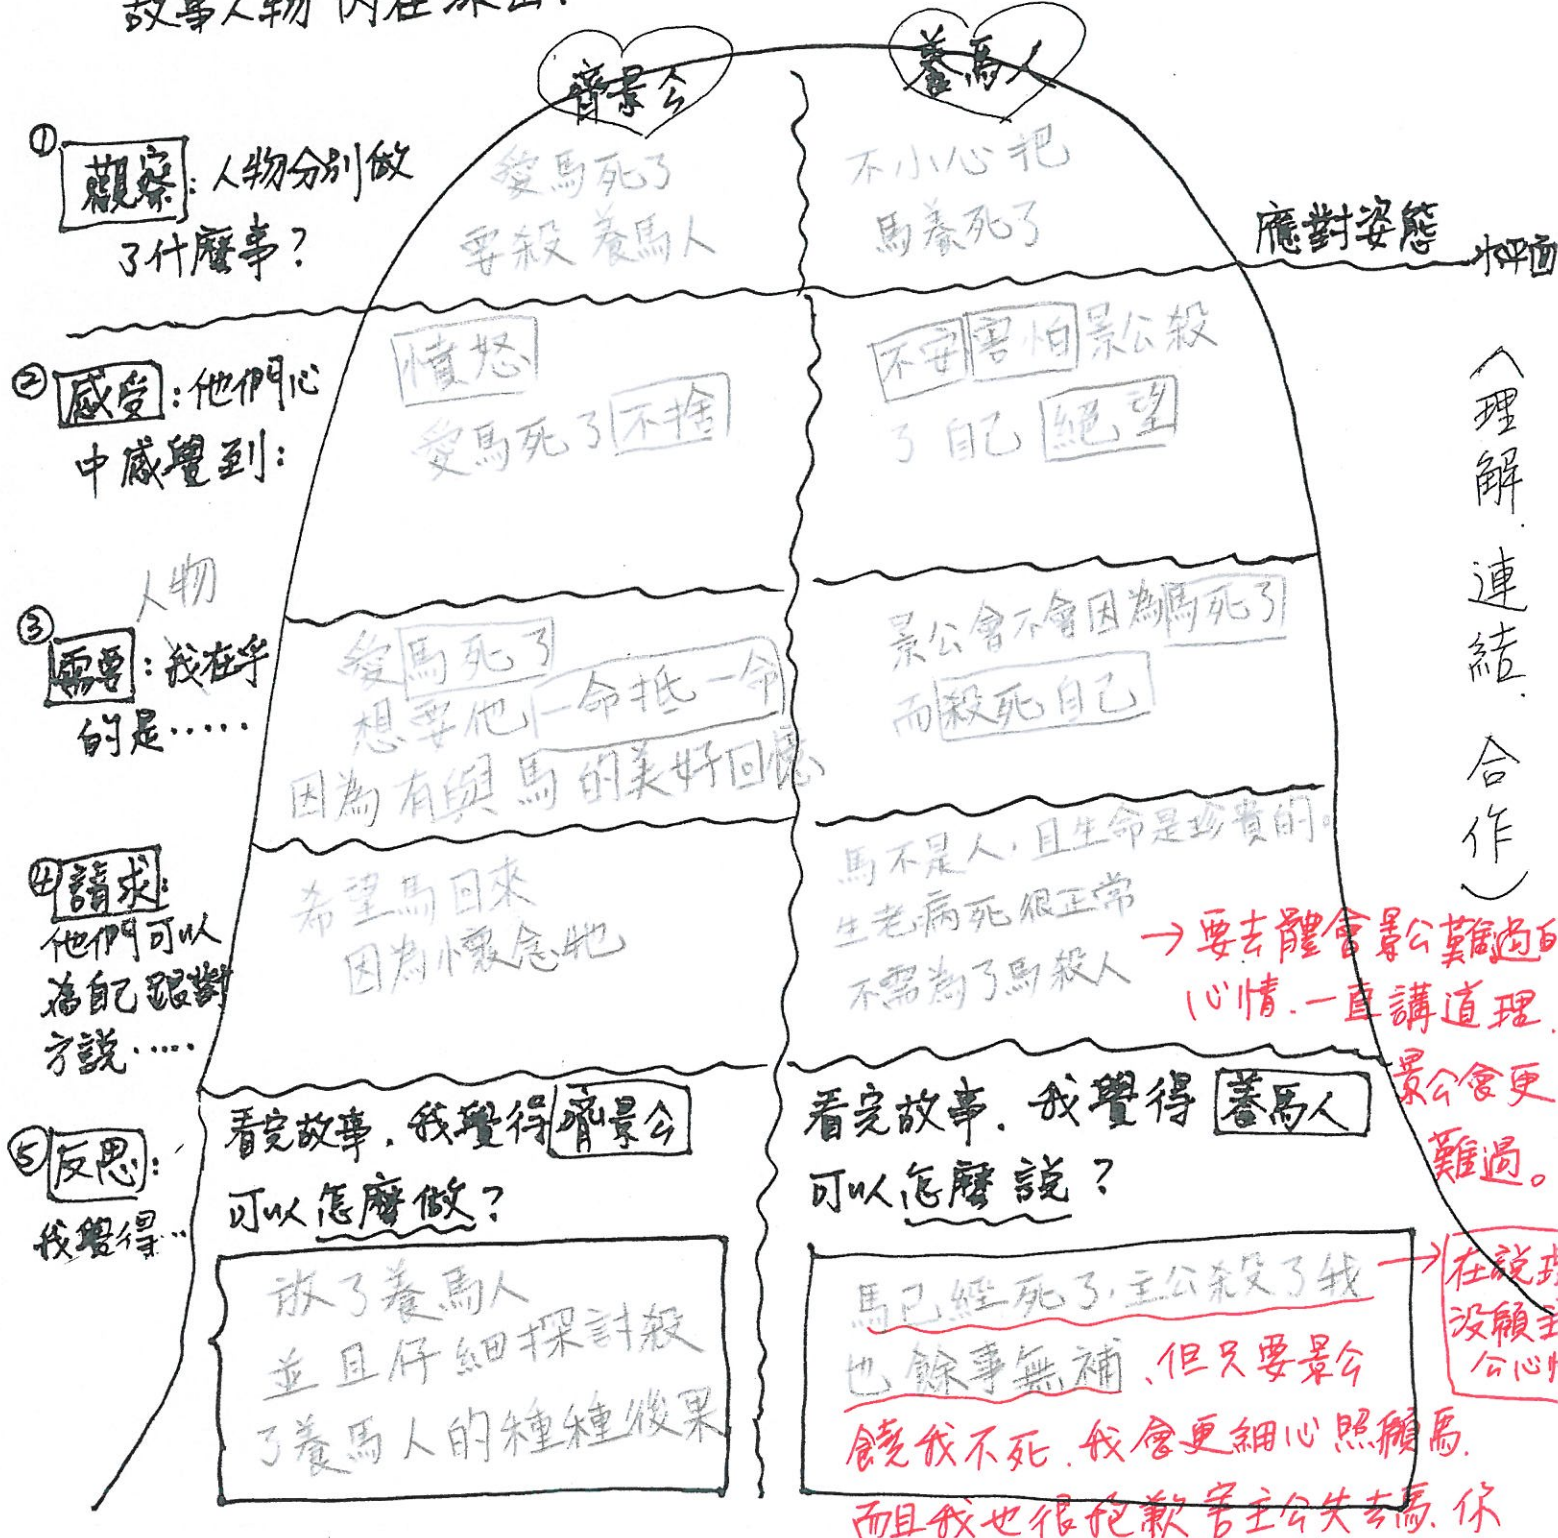 故事人物 內在
齊景公
養馬人
①觀察：人物分別做
了什麼事？
愛馬死了
要殺養馬人
不小心把
馬養死了
應對姿態
水平面
②感受：他們心
中感覺到：
憤怒
愛馬死了不捨
不安害怕景公殺
了自己絕望
（理解．連結．合作）
人物
③需要：我在乎
的是……
愛馬死了
想要他一命抵一命
因為有與馬的美好回憶
景公會不會因為馬死了
而殺死自己
④請求：
他們可以
為自己跟對
方說……
希望馬回來
因為懷念牠
馬不是人，且生命是珍貴的。
生老病死很正常
不需為了馬殺人
→要去體會景公難過的
心情．一直講道理．
景公會更
難過。
⑤反思：
我覺得…
看完故事，我覺得齊景公
可以怎麼做？
放了養馬人
並且仔細探討殺
了養馬人的種種後果
看完故事．我覺得養馬人
可以怎麼說？
馬已經死了，主公殺了我
也餘事無補、但只要景公
饒我不死．我會更細心照顧馬．
而且我也很抱歉害主公失去馬．你
→在說
沒顧主
公心情